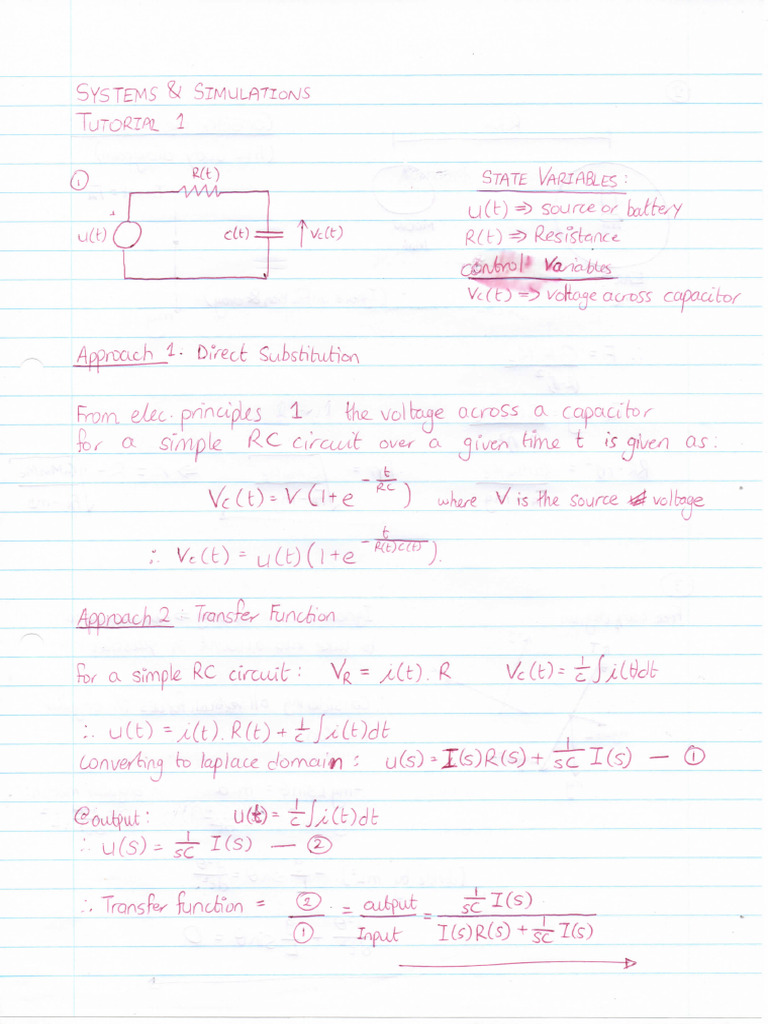 SYSTEMS & SIMULATIONS
TUTORIAL 1
①
R(t)
+
u(t)
C(t)
Vc(t)
STATE VARIABLES:
u(t) => source or battery
R(t) => Resistance
control Variables
Vc(t) => voltage across capacitor
Approach 1. Direct Substitution
From elec. principles 1 the voltage across a capacitor
for a simple RC circuit over a given time t is given as:
Vc(t) = V (1+e^(-t/RC)) where V is the source voltage
∴ Vc(t) = u(t)(1+e^(-t/R(t)C(t))).
Approach 2 - Transfer Function
For a simple RC circuit: V_R = i(t). R Vc(t) = 1/c ∫i(t)dt
∴ u(t) = i(t). R(t) + 1/c ∫i(t)dt
Converting to laplace domain: u(s) = I(s)R(s) + 1/sC I(s) — ①
@output: u(t) = 1/c ∫i(t)dt
∴ u(s) = 1/sC I(s) — ②
∴ Transfer function = ②/① = output/Input = 1/sC I(s) / I(s)R(s) + 1/sC I(s)